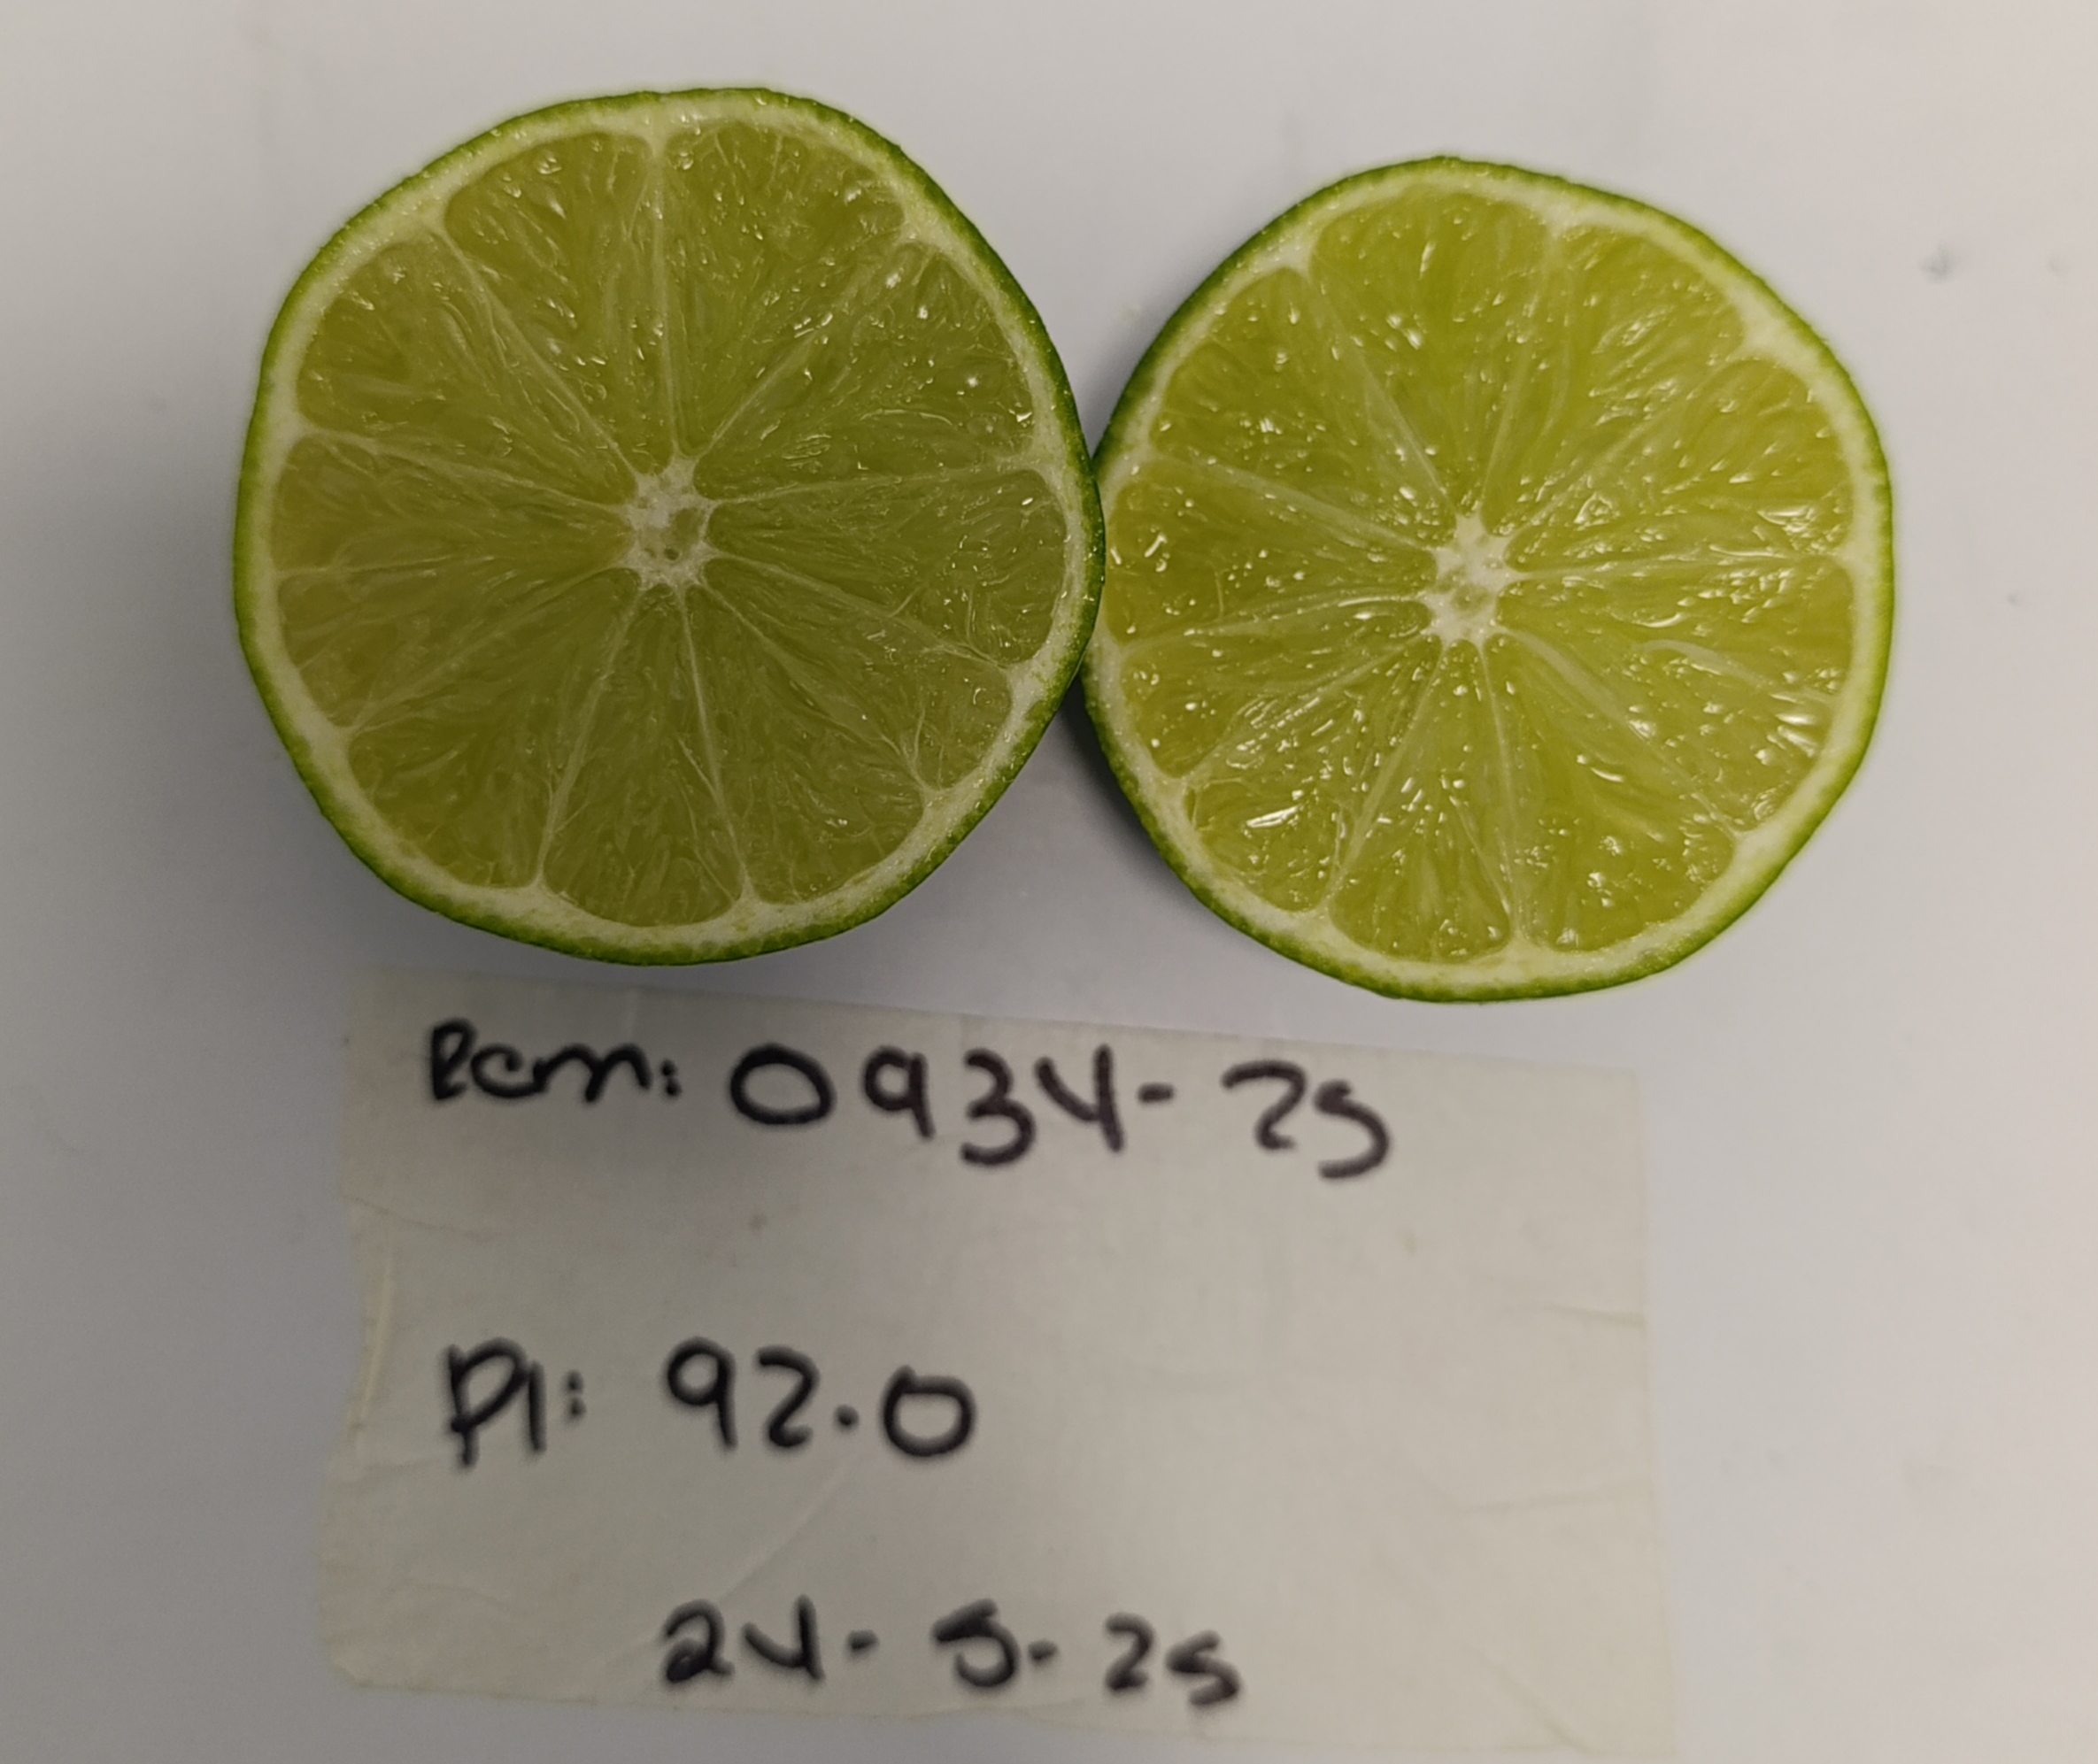 Rcm: 0934-25
P1: 92.0
24-5-25